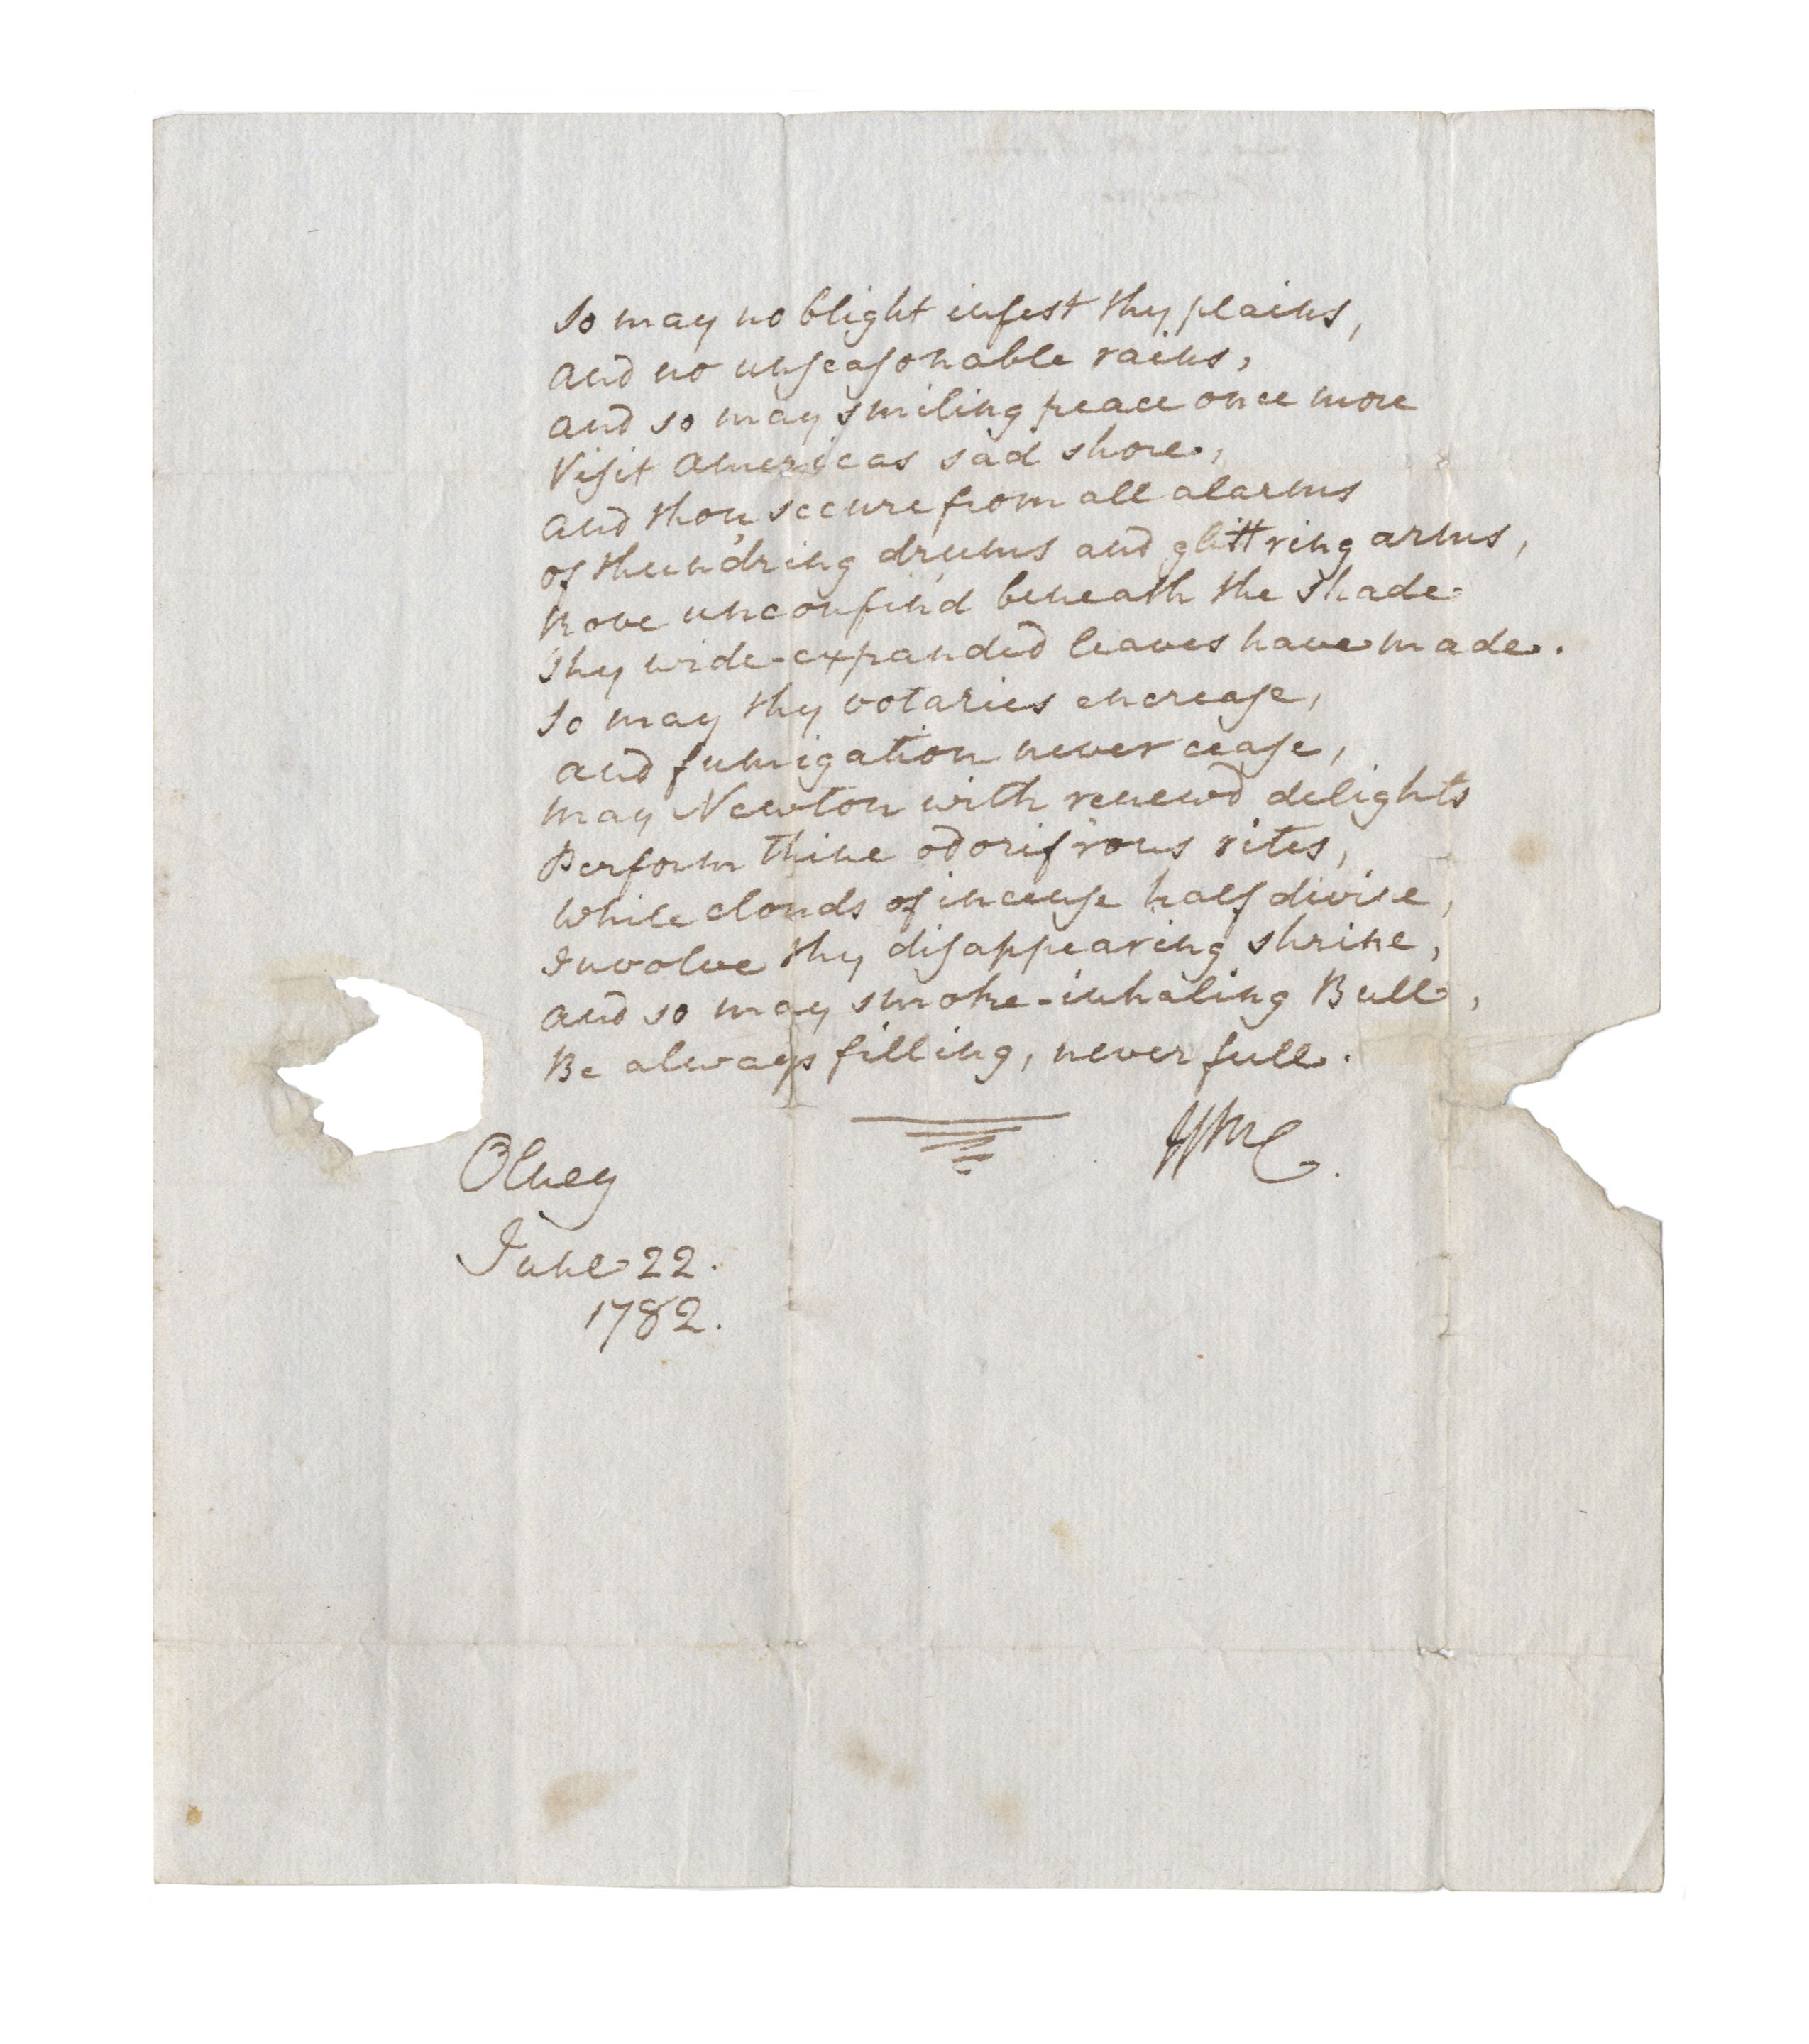 So may no blight infest thy plains,
and no unseasonable rains,
and so may smiling peace once more
Visit Americas sad shore,
and thou, secure from all alarms
of thund'ring drums and glitt'ring arms,
Rove unconfin'd beneath the shade
Thy wide-expanded leaves have made.
So may thy votaries encrease,
and fumigation never cease,
may Newton with renew'd delights
Perform thine odorif'rous rites,
While clouds of incense half divine,
Involve thy disappearing shrine,
and so may smoke-inhaling Bull,
Be always filling, never full.
WmC.
Olney
June 22.
1782.